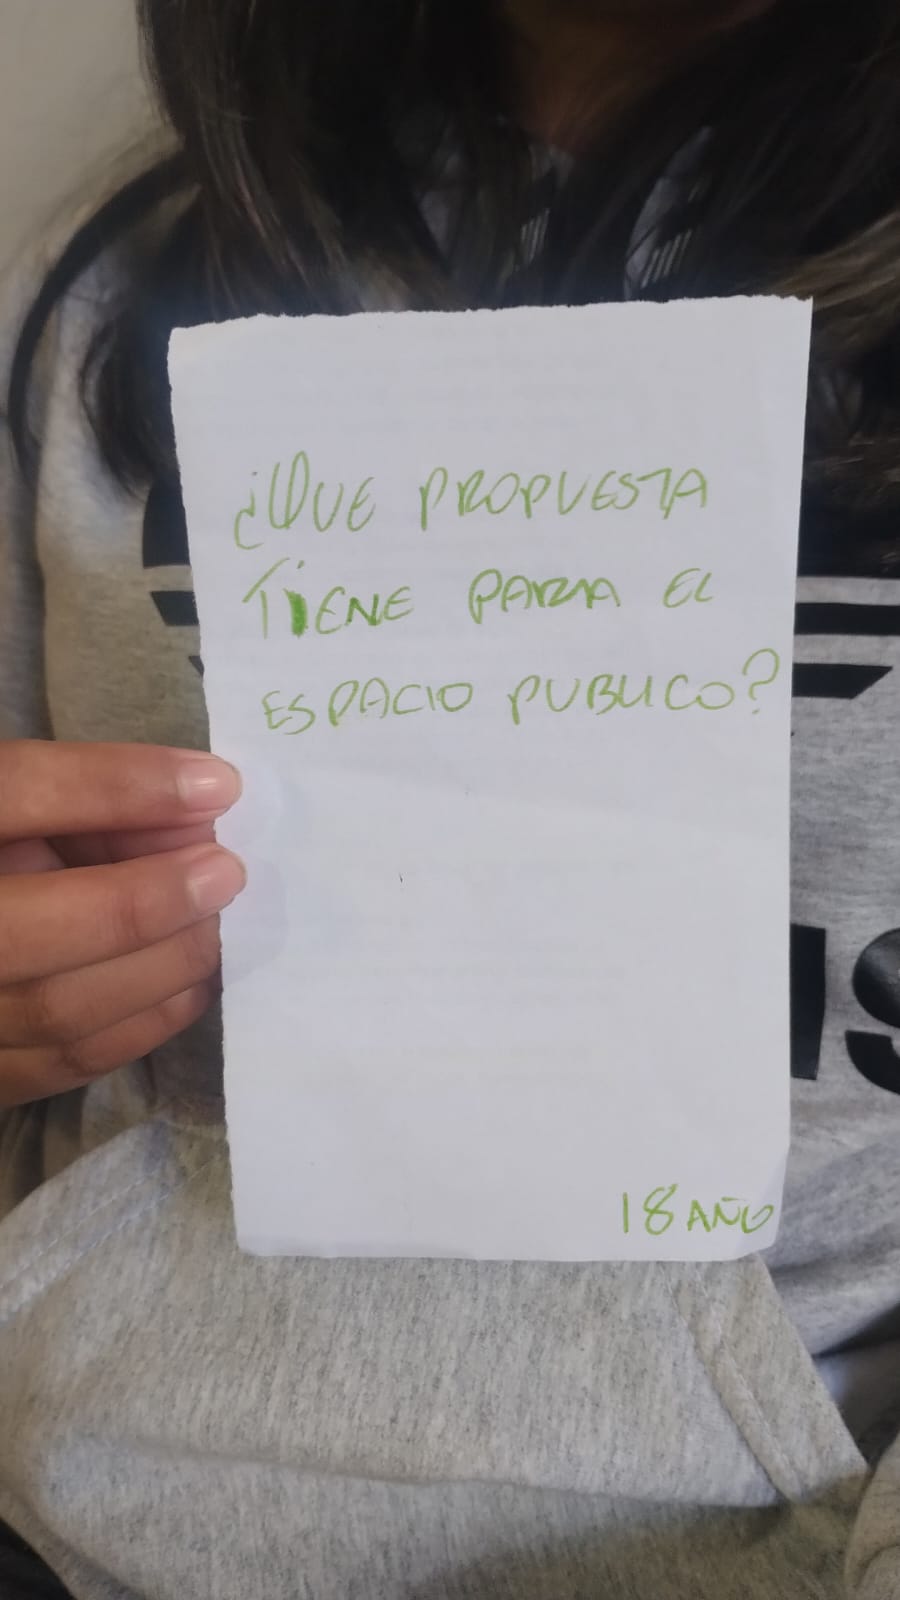 ¿QUE PROPUESTA
TiENE PARA EL
ESPACIO PUBLICO?
18 AÑO